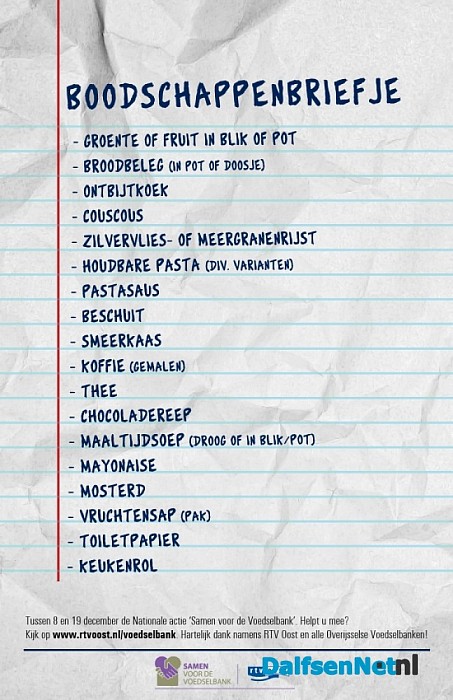 BOODSCHAPPENBRIEFJE
- GROENTE OF FRUIT IN BLIK OF POT
- BROODBELEG (IN POT OF DOOSJE)
- ONTBIJTKOEK
- COUSCOUS
- ZILVERVLIES- OF MEERGRANENRIJST
- HOUDBARE PASTA (DIV. VARIANTEN)
- PASTASAUS
- BESCHUIT
- SMEERKAAS
- KOFFIE (GEMALEN)
- THEE
- CHOCOLADEREEP
- MAALTIJDSOEP (DROOG OF IN BLIK/POT)
- MAYONAISE
- MOSTERD
- VRUCHTENSAP (PAK)
- TOILETPAPIER
- KEUKENROL
Tussen 8 en 19 december de Nationale actie 'Samen voor de Voedselbank'. Helpt u mee?
Kijk op www.rtvoost.nl/voedselbank. Hartelijk dank namens RTV Oost en alle Overijsselse Voedselbanken!
SAMEN
VOOR DE
VOEDSELBANK
rtv
DalfsenNet.nl